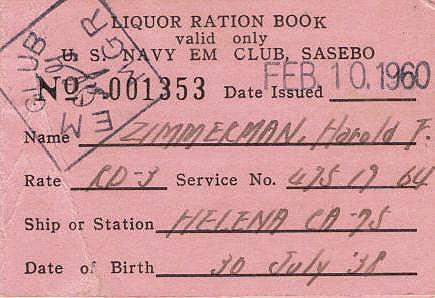 LIQUOR RATION BOOK
valid only
U. S. NAVY EM CLUB, SASEBO
No 001353 Date Issued FEB 10. 1960
EM CLUB
MGR
Name ZIMMERMAN, Harold F.
Rate RD-3 Service No. 475 19 64
Ship or Station HELENA CA-75
Date of Birth 30 July '38